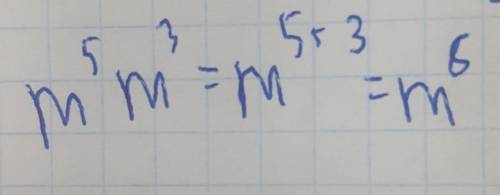 m⁵ m³ = m⁵⁺³ = m⁶